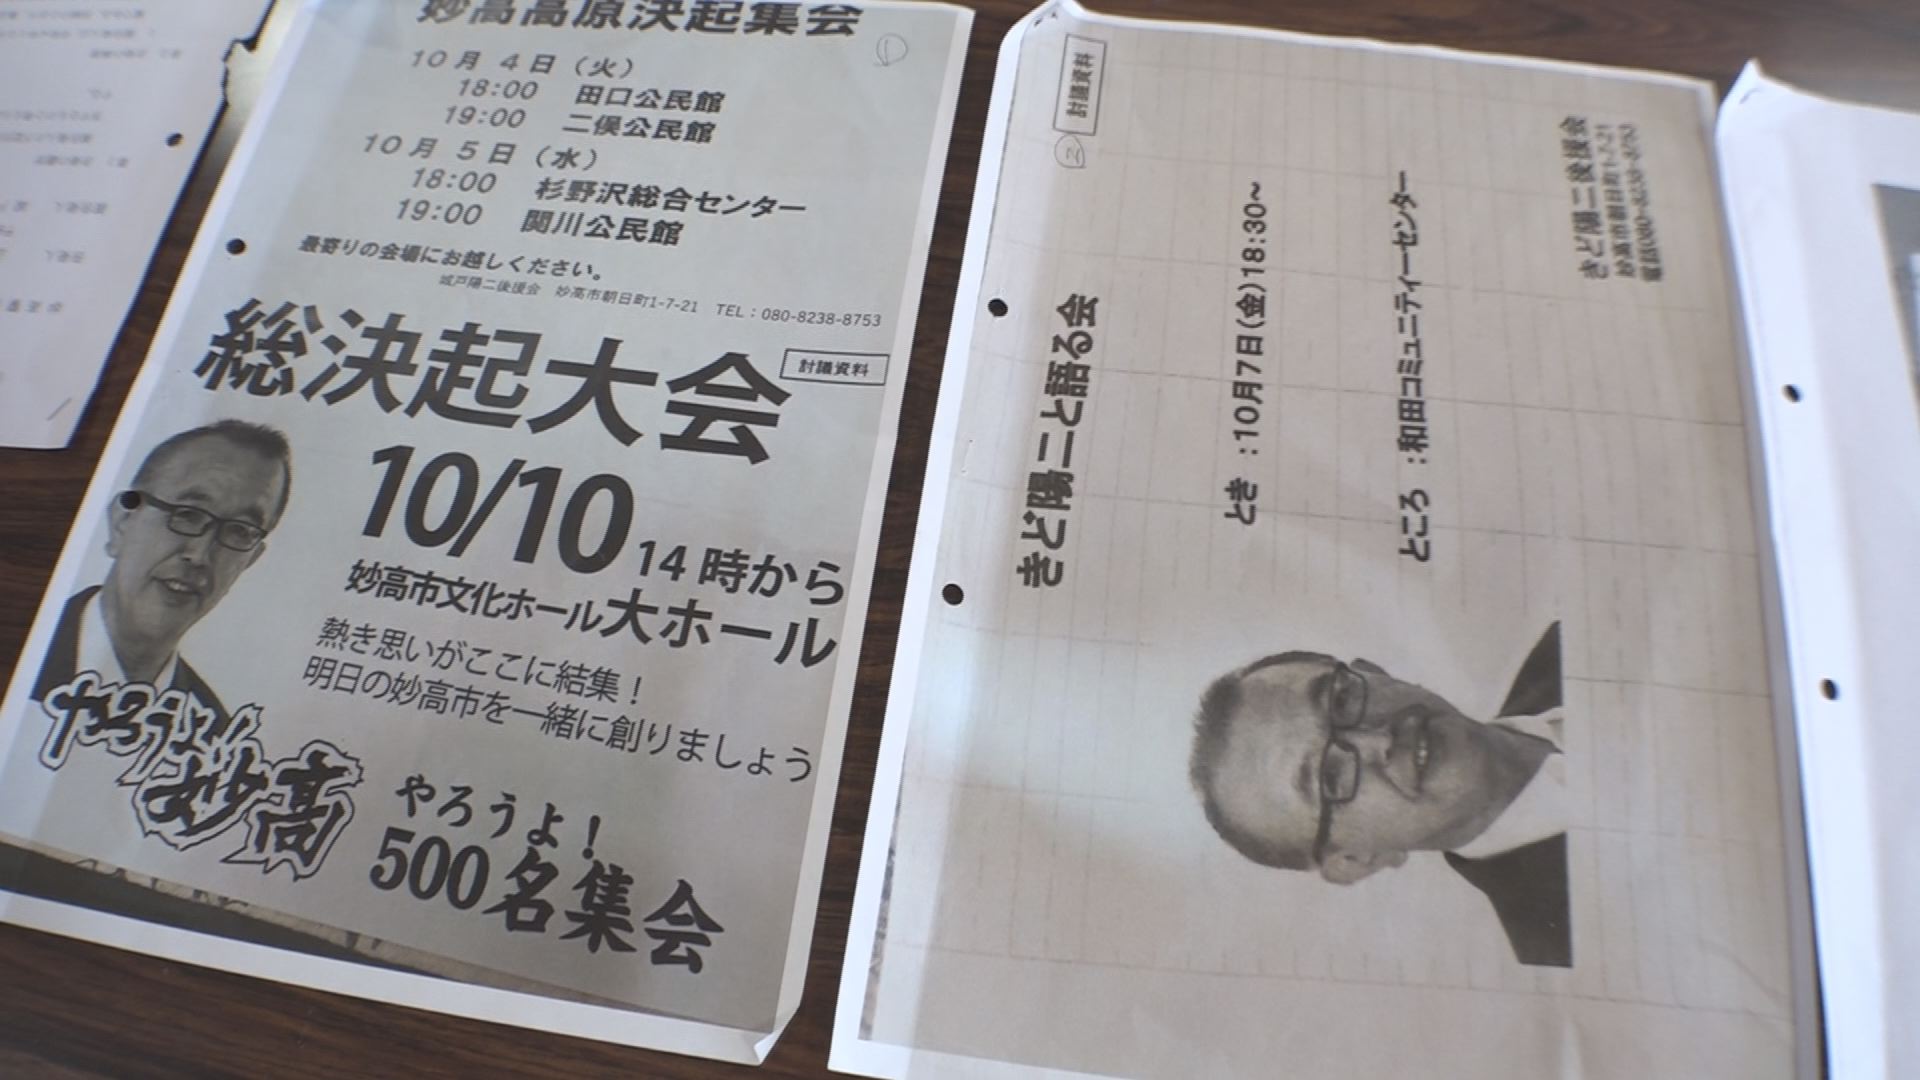 妙高高原決起集会
10月 4日（火）
18:00 田口公民館
19:00 二俣公民館
10月 5日（水）
18:00 杉野沢総合センター
19:00 関川公民館
最寄りの会場にお越しください。
城戸陽二後援会 妙高市朝日町1-7-21 TEL：080-8238-8753
総決起大会
討議資料
10/10 14時から
妙高市文化ホール大ホール
熱き思いがここに結集！
明日の妙高市を一緒に創りましょう
やろうよ妙高
やろうよ！
500名集会
討議資料
②
きど陽二と語る会
とき ：10月7日(金)18:30～
ところ ：和田コミュニティーセンター
きど陽二後援会
妙高市朝日町1-7-21
電話080-8238-8753